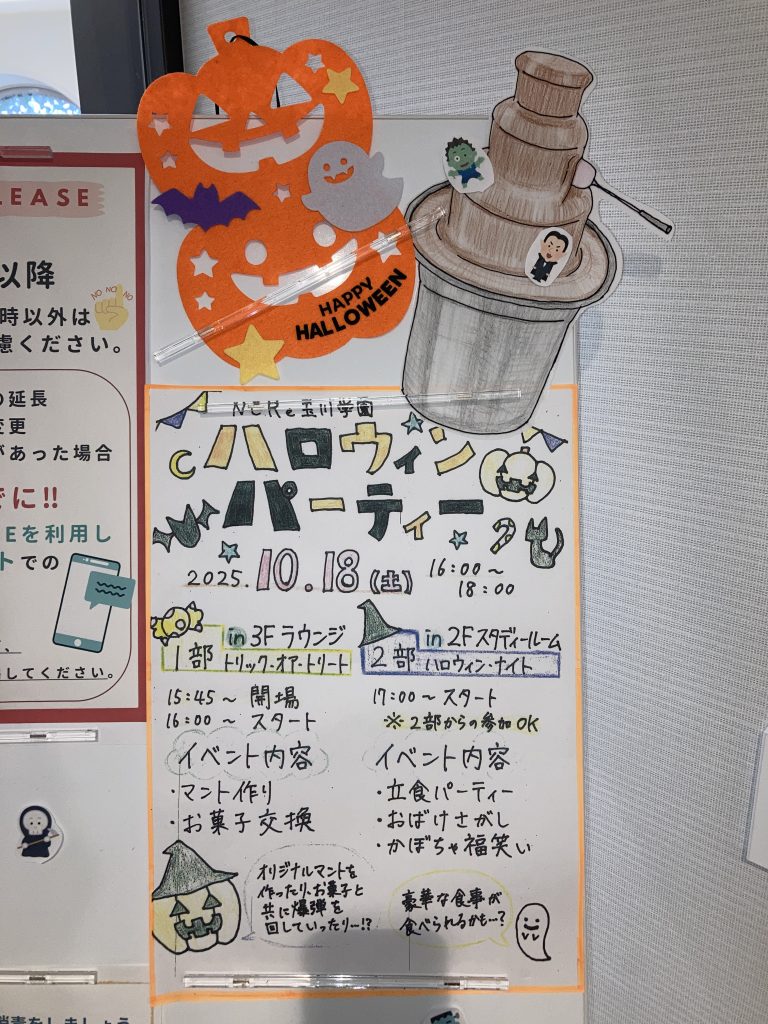 LEASE
以降
NO NO NO
時以外は
慮ください。
の延長
変更
があった場合
でに!!
Eを利用し
トでの
、
してください。
HAPPY
HALLOWEEN
NERe玉川学園
ハロウィン
パーティー
2025.10.18(土)
16:00〜
18:00
in 3F ラウンジ
1部 トリック・オア・トリート
15:45〜 開場
16:00〜 スタート
イベント内容
・マント作り
・お菓子交換
オリジナルマントを
作ったり、お菓子と
共に爆弾を
回していったり…!?
in 2F スタディールーム
2部 ハロウィン・ナイト
17:00〜 スタート
※2部からの参加OK
イベント内容
・立食パーティー
・おばけさがし
・かぼちゃ福笑い
豪華な食事が
食べられるかも…?
消毒をしましょう